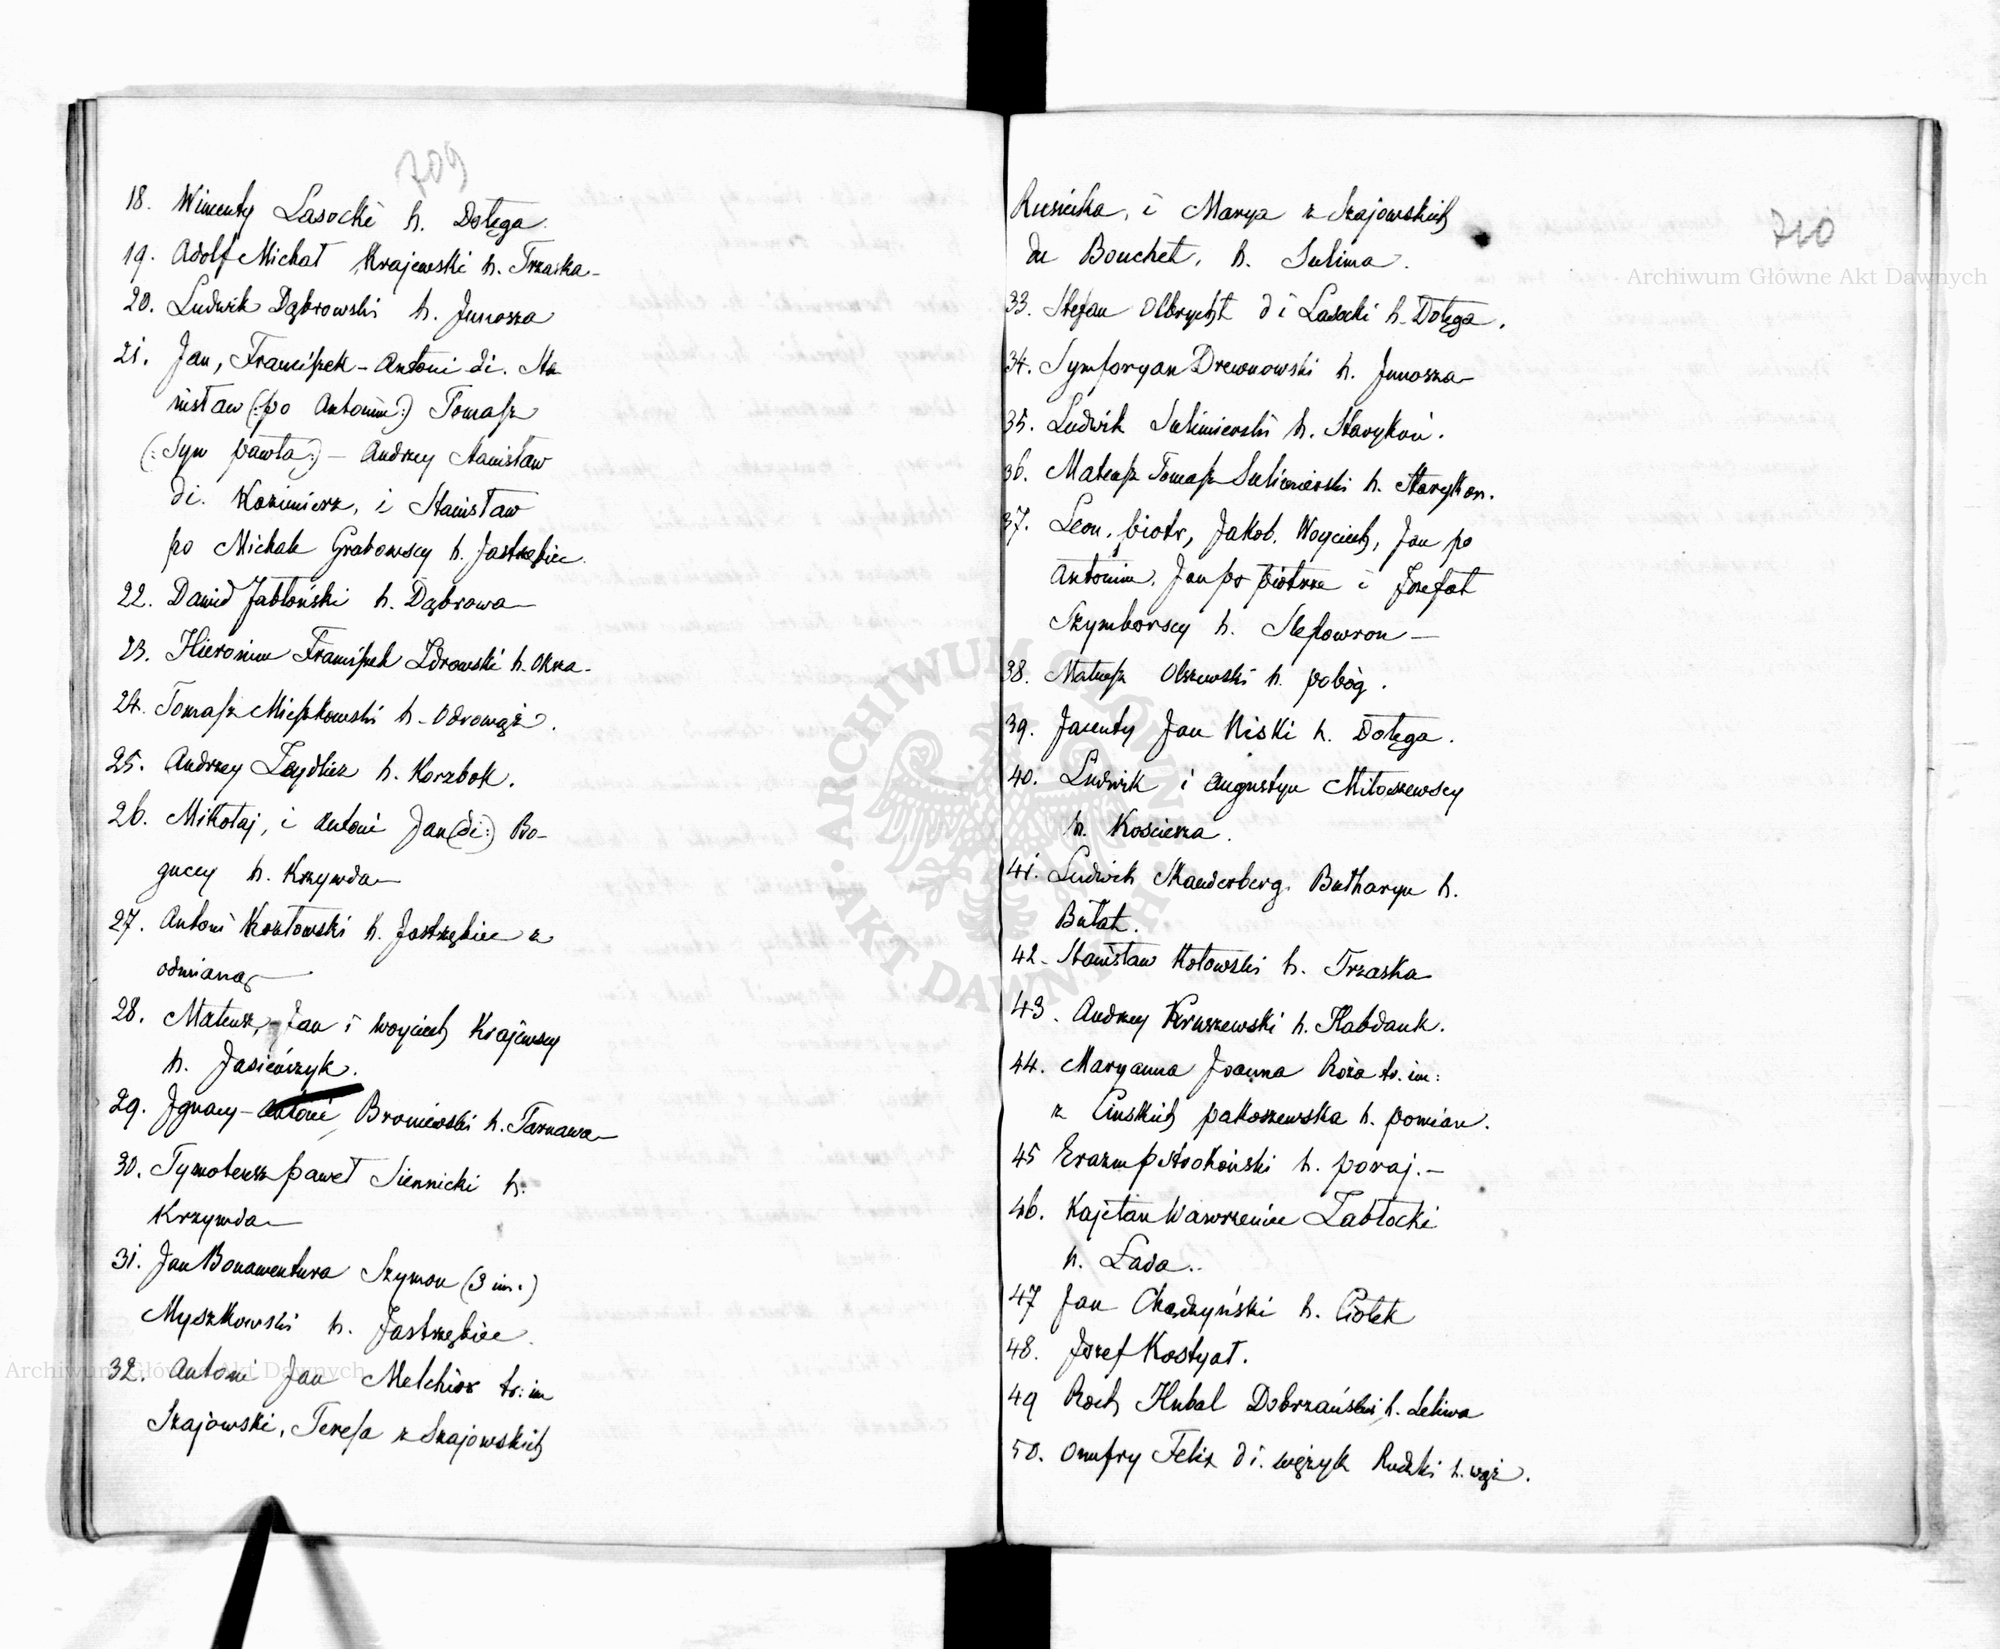 709
18. Wincenty Lasocki h. Dołęga.
19. Adolf Michał Krajewski h. Trzaska
20. Ludwik Dąbrowski h. Junosza
21. Jan, Franciszek - Antoni di. Sta
nisław (:po Antonim:) Tomasz
(:Syn Pawła:) - Andrzey Stanisław
di. Kazimierz, i Stanisław
po Michale Grabowscy h. Jastrzębiec.
22. Dawid Jabłoński h. Dąbrowa
23. Hieronim Franciszek Zdrowski h. Oksza.
24. Tomasz Mieszkowski h. Odrowąż.
25. Andrzey Zeydlicz h. Korzbok.
26. Mikołaj, i Antoni Jan (di:) Bo-
guccy h. Krzywda
27. Antoni Kozłowski h. Jastrzębiec z
odmianą
28. Mateusz, Jan i Woyciech Krajewscy
h. Jasieńczyk.
29. Ignacy - Antoni Broniewski h. Tarnawa
30. Tymoteusz Paweł Siennicki h.
Krzywda
31. Jan Bonawentura Szymon (3 im.)
Myszkowski h. Jastrzębiec.
32. Antoni Jan Melchior tr: im
Szajowski, Teressa z Szajowskich
710
Rusiecka, i Marya z Szajowskich
du Bouchet, h. Sulima.
33. Stefan Olbrycht di Lasocki h. Dołęga.
34. Symforyan Drewnowski h. Junosza
35. Ludwik Sulimierski h. Starykoń.
36. Mateusz Tomasz Sulimierski h. Starykon.
37. Leon, Piotr, Jakob, Woyciech, Jan po
Antonim, Jan po Piotrze i Jozefat
Szymborscy h. Slepowron
38. Mateusz Olszewski h. Pobóg.
39. Jacenty Jan Niski h. Dołęga.
40. Ludwik i Augustyn Miłoszewscy
h. Kościesza.
41. Ludwik Skanderberg Butharyn h.
Bułat.
42. Stanisław Kołowski h. Trzaska
43. Andrzey Kruszewski h. Habdank.
44. Maryanna Joanna Roża tr. im:
z Ciuskich Pakoszewska h. Pomian.
45 Erazm Pstrokoński h. Poraj.
46. Kajetan Wawrzeniec Zabłocki
h. Łada..
47 Jan Chądzyński h. Ciołek
48. Jozef Kostyał.
49 Roch Hubal Dobrzański h. Leliwa
50. Onufry Felix di. Wężyk Rudzki h. Wąż.
Archiwum Główne Akt Dawnych
Archiwum Główne Akt Dawnych
ARCHIWUM GŁÓWNE AKT DAWNYCH